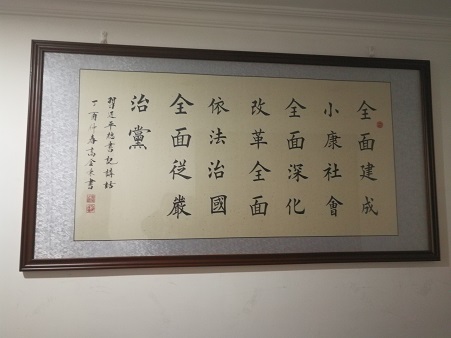 全面建成
小康社會
全面深化
改革全面
依法治國
全面從嚴
治黨
習近平總書記講話
丁酉仲春高金來書